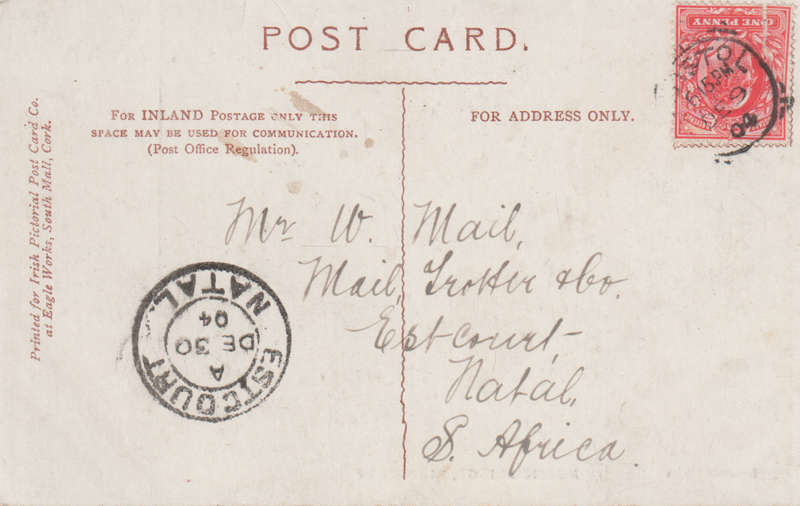 POST CARD.
For INLAND Postage only this
space may be used for communication.
(Post Office Regulation).
FOR ADDRESS ONLY.
Printed for Irish Pictorial Post Card Co.
at Eagle Works, South Mall, Cork.
ONE PENNY
04
Mr W. Mail,
Mail, Trotter & Co.
Estcourt
Natal,
S. Africa.
ESTCOURT NATAL
A
DE 30
04